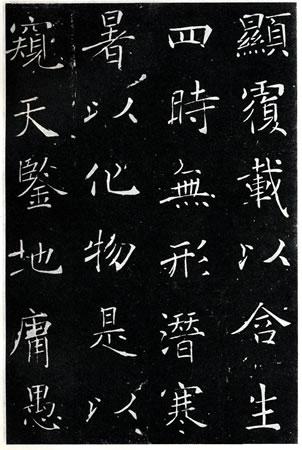 顯覆載以含生
四時無形潛寒
暑以化物是以
窺天鑒地庸愚